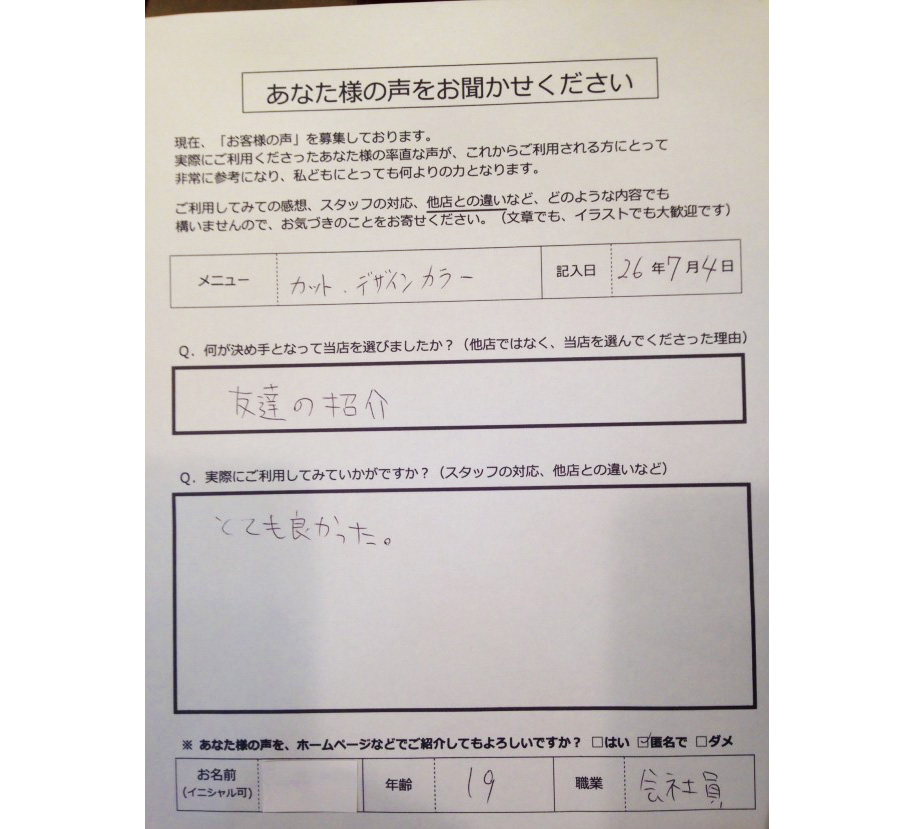 あなた様の声をお聞かせください
現在、「お客様の声」を募集しております。
実際にご利用くださったあなた様の率直な声が、これからご利用される方にとって
非常に参考になり、私どもにとっても何よりの力となります。
ご利用してみての感想、スタッフの対応、他店との違いなど、どのような内容でも
構いませんので、お気づきのことをお寄せください。（文章でも、イラストでも大歓迎です）
メニュー カット．デザインカラー 記入日 26年7月4日
Q．何が決め手となって当店を選びましたか？（他店ではなく、当店を選んでくださった理由）
友達の紹介
Q．実際にご利用してみていかがですか？（スタッフの対応、他店との違いなど）
とても良かった。
※ あなた様の声を、ホームページなどでご紹介してもよろしいですか？ □はい ☑匿名で □ダメ
お名前 年齢 19 職業 会社員
（イニシャル可）